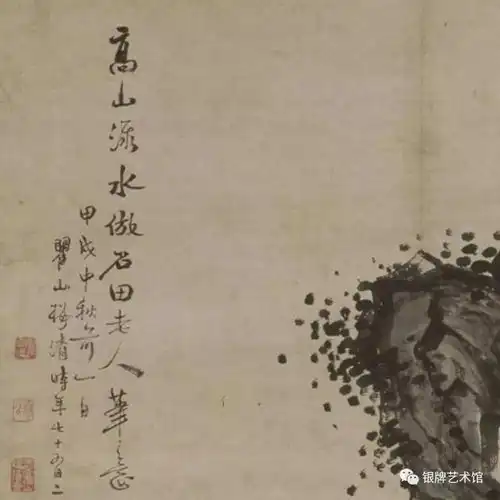 高山流水倣石田老人筆意
甲戌中秋前一日
瞿山梅清時年七十有二
银牌艺术馆